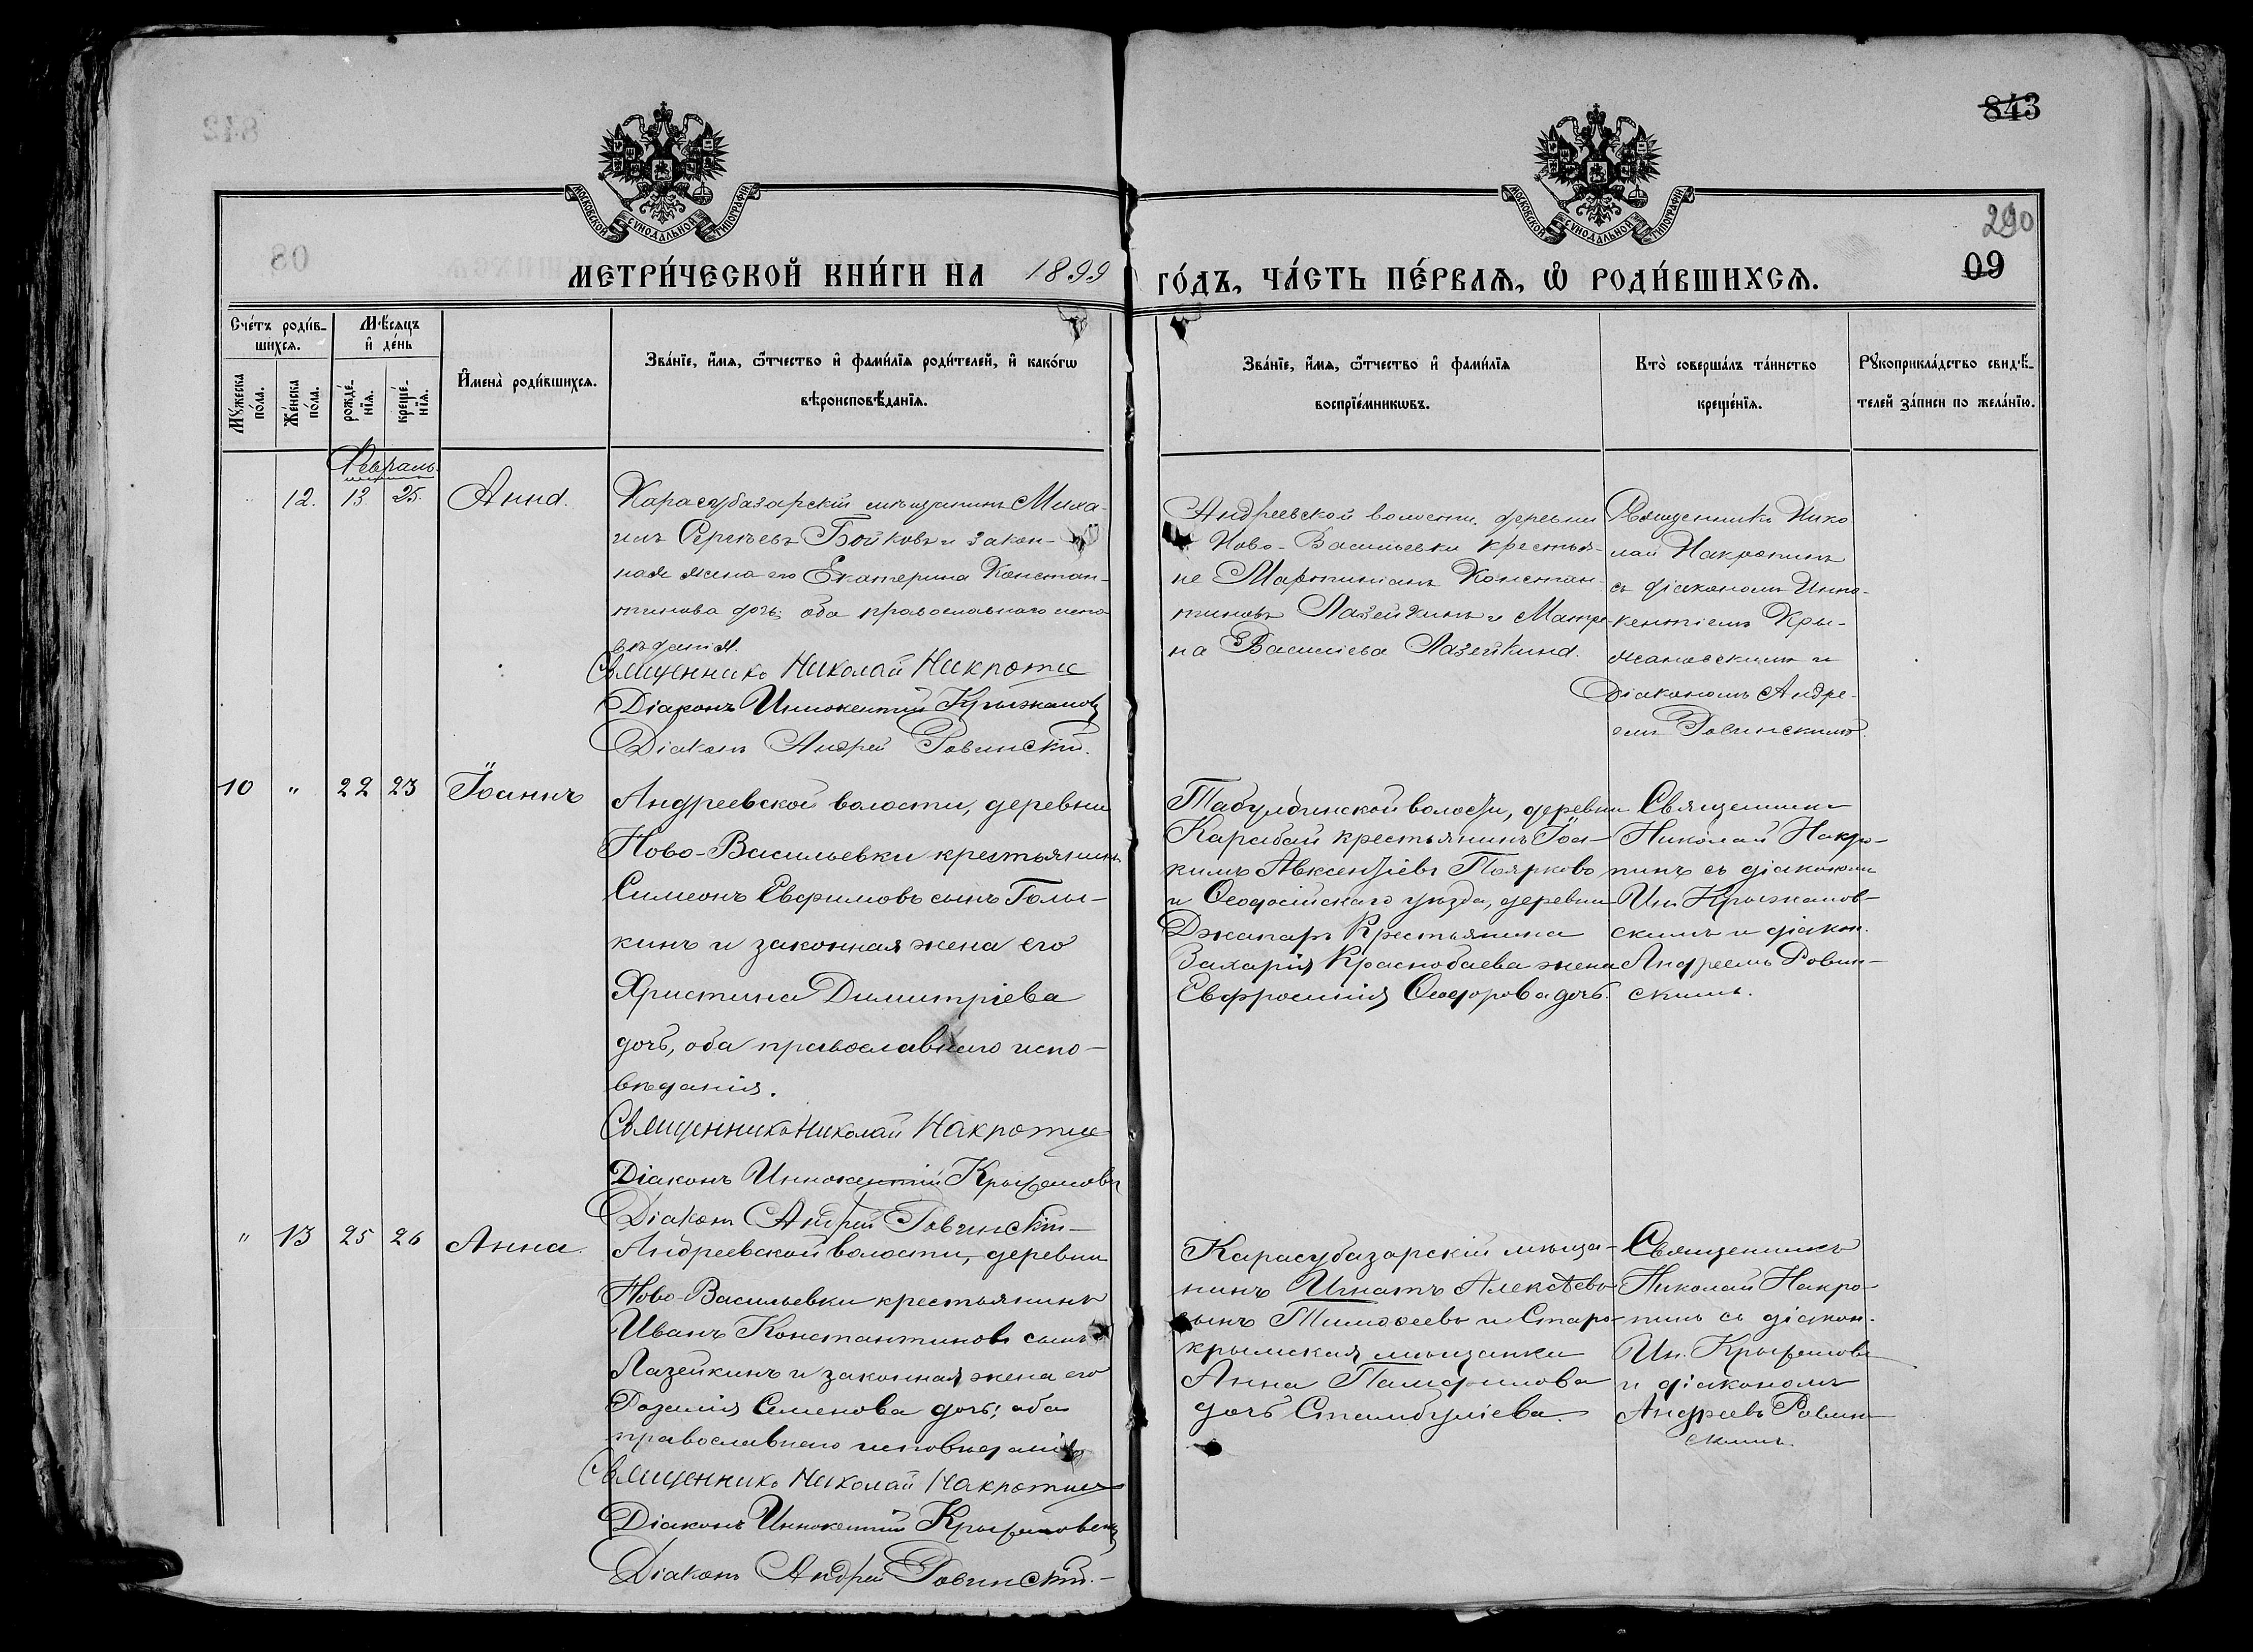 843
290
09
МОСКОВСКОЙ СУНОДАЛЬНОЙ ТИПОГРАФІИ
МОСКОВСКОЙ СУНОДАЛЬНОЙ ТИПОГРАФІИ
МЕТРИ́ЧЕСКОЙ КНИ́ГИ НА 1899 ГО́ДЪ, ЧА́СТЬ ПЕ́РВАѦ, Ѡ҆ РОДИ́ВШИХСѦ.
Сче́тъ роди́в-
шихсѧ.
Мꙋжеска
по́ла.
Же́нска
по́ла.
Мѣ́сѧцъ
и҆ де́нь
рожде́-
нїѧ.
креще́-
нїѧ.
И҆мена̀ роди́вшихсѧ.
Зва́нїе, и҆́мѧ, ѻ҆́тчество и҆ фами́лїѧ роди́телей, и҆ како́гѡ
вѣроисповѣ́данїѧ.
Зва́нїе, и҆́мѧ, ѻ҆́тчество и҆ фами́лїѧ
воспрїе́мникѡвъ.
Кто̀ соверша́лъ та́инство
креще́нїѧ.
Рꙋкоприкла́дство свидѣ́-
телей за́писи по жела́нїю.
Февраль
12. 13. 25. Анна.
Карасубазарскій мѣщанинъ Миха-
илъ Сергѣевъ Бойковъ и закон-
ная жена его Екатерина Констан-
тинова дочь; оба православнаго испо
вѣданія.
Священникъ Николай Накропин
Діаконъ Иннокентій Крыжанов
Діаконъ Андрей Ровинскій.
Андреевской волости, деревни
Ново-Васильевки крестья-
не Мартиніанъ Констан-
тиновъ Лазейкинъ и Матре-
на Василіева Лазейкина.
Священникъ Нико-
лай Накропинъ
съ діакономъ Инно-
кентіемъ Кры-
жановскимъ и
Діакономъ Андре-
емъ Ровинскимъ.
10 " 22 23 Іоаннъ
Андреевской волости, деревни
Ново-Васильевки крестьянинъ
Симеонъ Евфимовъ сынъ Голы-
кинъ и законная жена его
Христина Димитріева
дочь, оба православнаго испо-
вѣданія.
Священникъ Николай Накропин
Діаконъ Иннокентій Крыжановск
Діаконъ Андрей Ровинскій
Табулдинской волости, деревни
Карабай крестьянинъ Іоа-
кимъ Авксентіевъ Поярково
и Ѳеодосійскаго уѣзда, деревни
Джапаръ Крестьянина
Захарія Краснобаева жена
Евфросинія Ѳеодорова дочь.
Священникъ
Николай Накро-
пинъ съ діакономъ
Ин. Крыжанов-
скимъ и діакон.
Андреемъ Ровин-
скимъ.
" 13 25 26 Анна.
Андреевской волости, деревни
Ново-Васильевки крестьянинъ
Иванъ Константиновъ сынъ
Лазейкинъ и законная жена его
Розалія Семенова дочь; оба
православнаго исповѣданія
Священникъ Николай Накропин
Діаконъ Иннокентій Крыжановск
Діаконъ Андрей Ровинскій.
Карасубазарскій мѣща-
нинъ Игнатъ Алексѣевъ
сынъ Тимоѳеевъ и Старо-
крымская мѣщанка
Анна Памфилова
дочь Стамбуліева.
Священникъ
Николай Накро-
пинъ съ діакон.
Ин. Крыжановск
и діакономъ
Андреевъ Ровин-
скимъ.